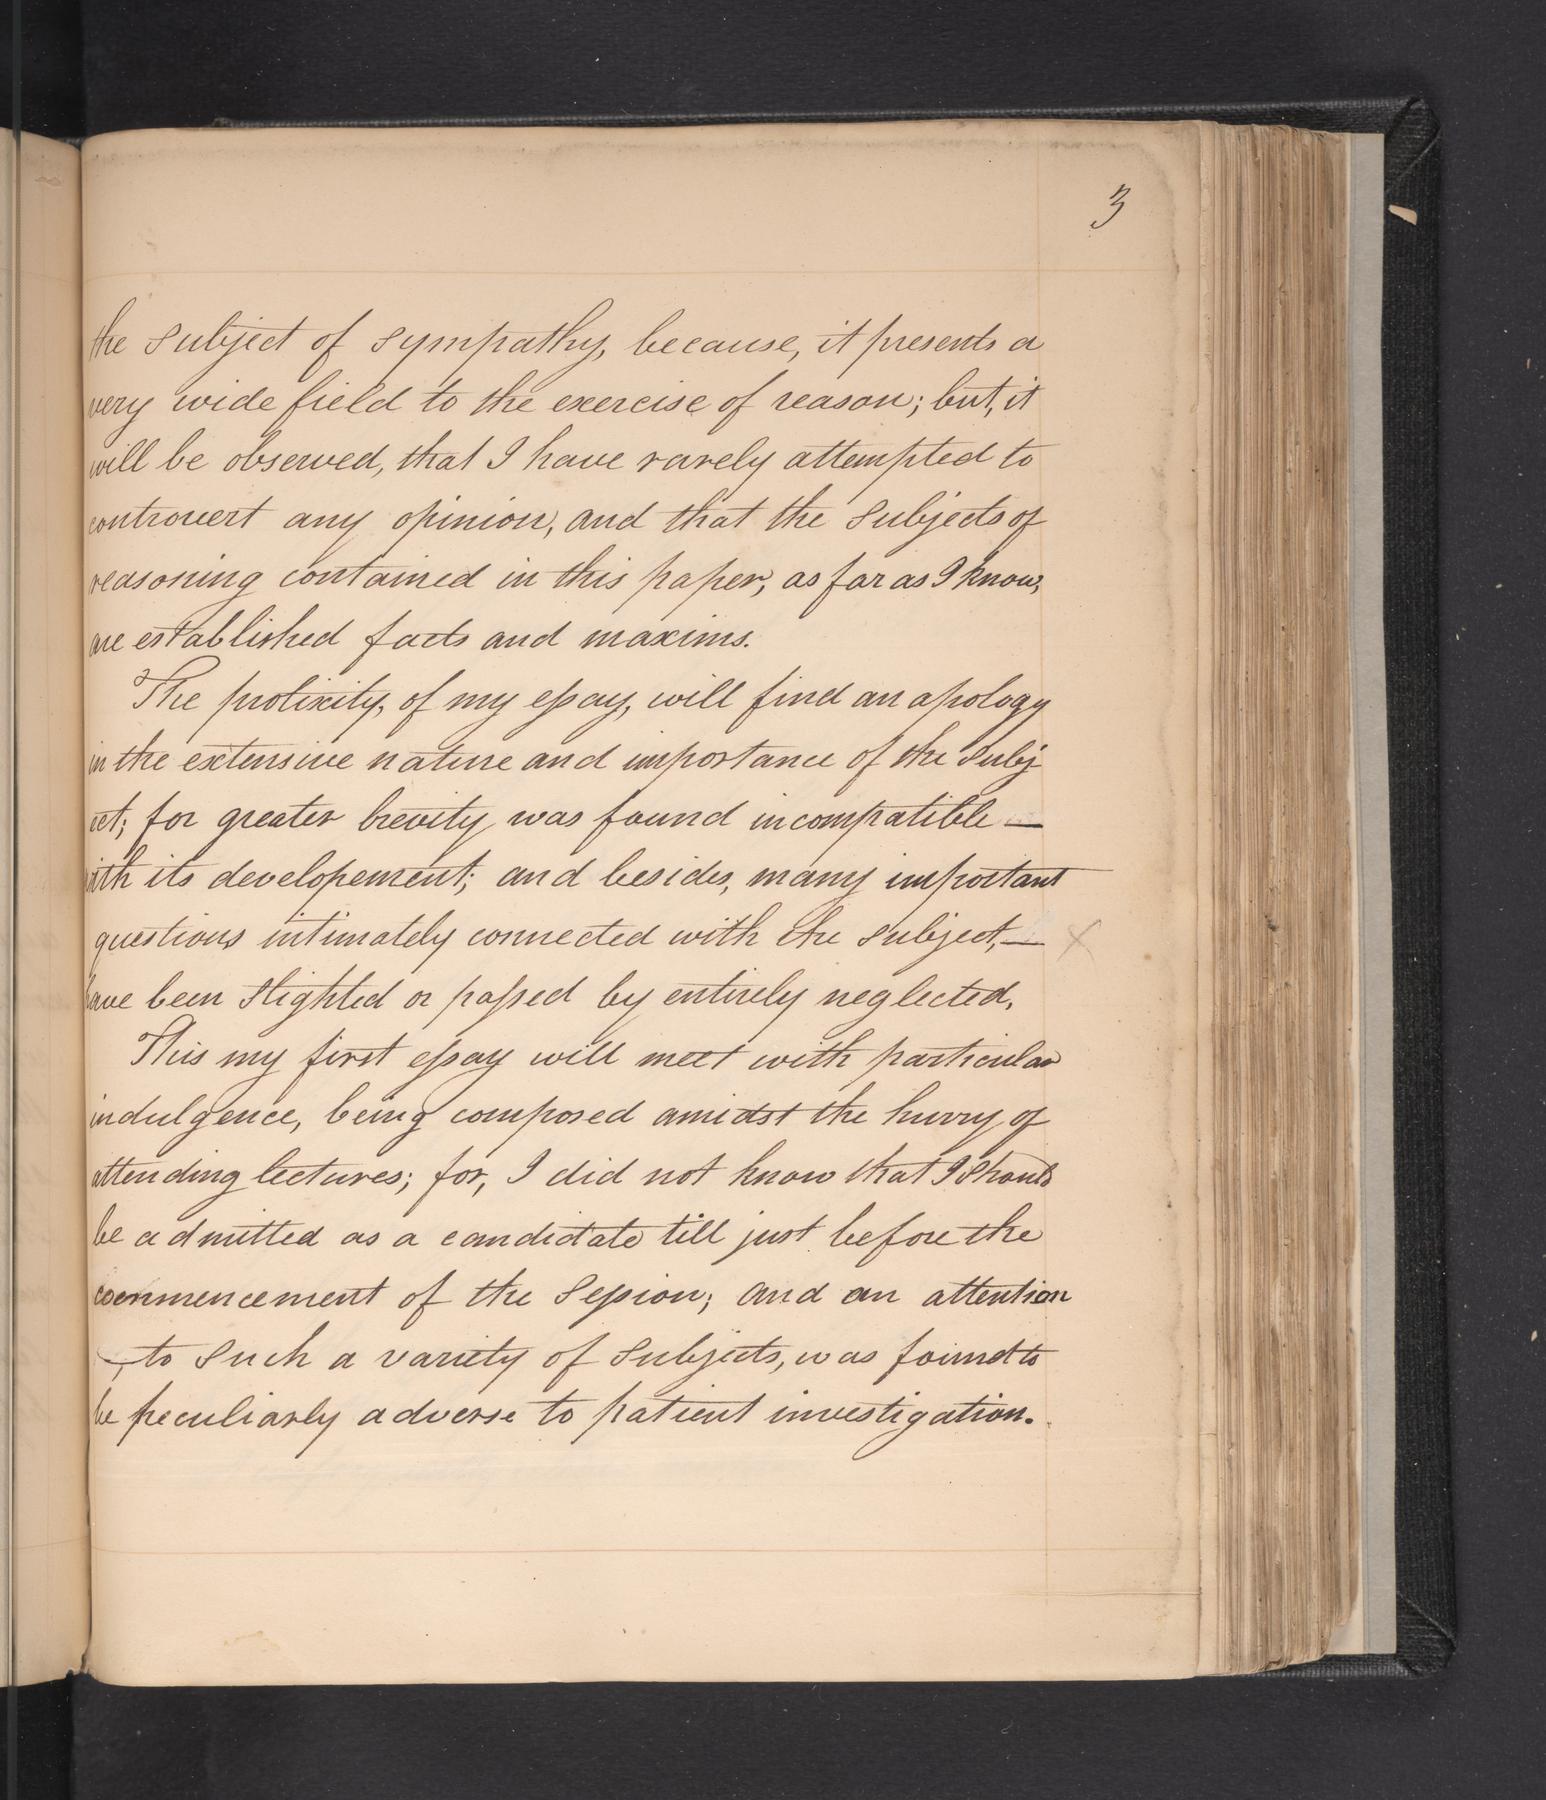 3
the subject of sympathy, because, it presents a
very wide field to the exercise of reason; but, it
will be observed, that I have rarely attempted to
controvert any opinion, and that the subjects of
reasoning contained in this paper, as far as I know,
are established facts and maxims.
The prolixity, of my essay, will find an apology
in the extensive nature and importance of the subj
ect; for greater brevity, was found incompatible —
with its developement; and besides, many important
questions intimately connected with the subject, — x
have been slighted or passed by entirely neglected.
This my first essay will meet with particular
indulgence, being composed amidst the hurry of
attending lectures; for, I did not know that I should
be admitted as a candidate till just before the
commencement of the session; and an attention
to such a variety of subjects, was found to
be peculiarly adverse to patient investigation.